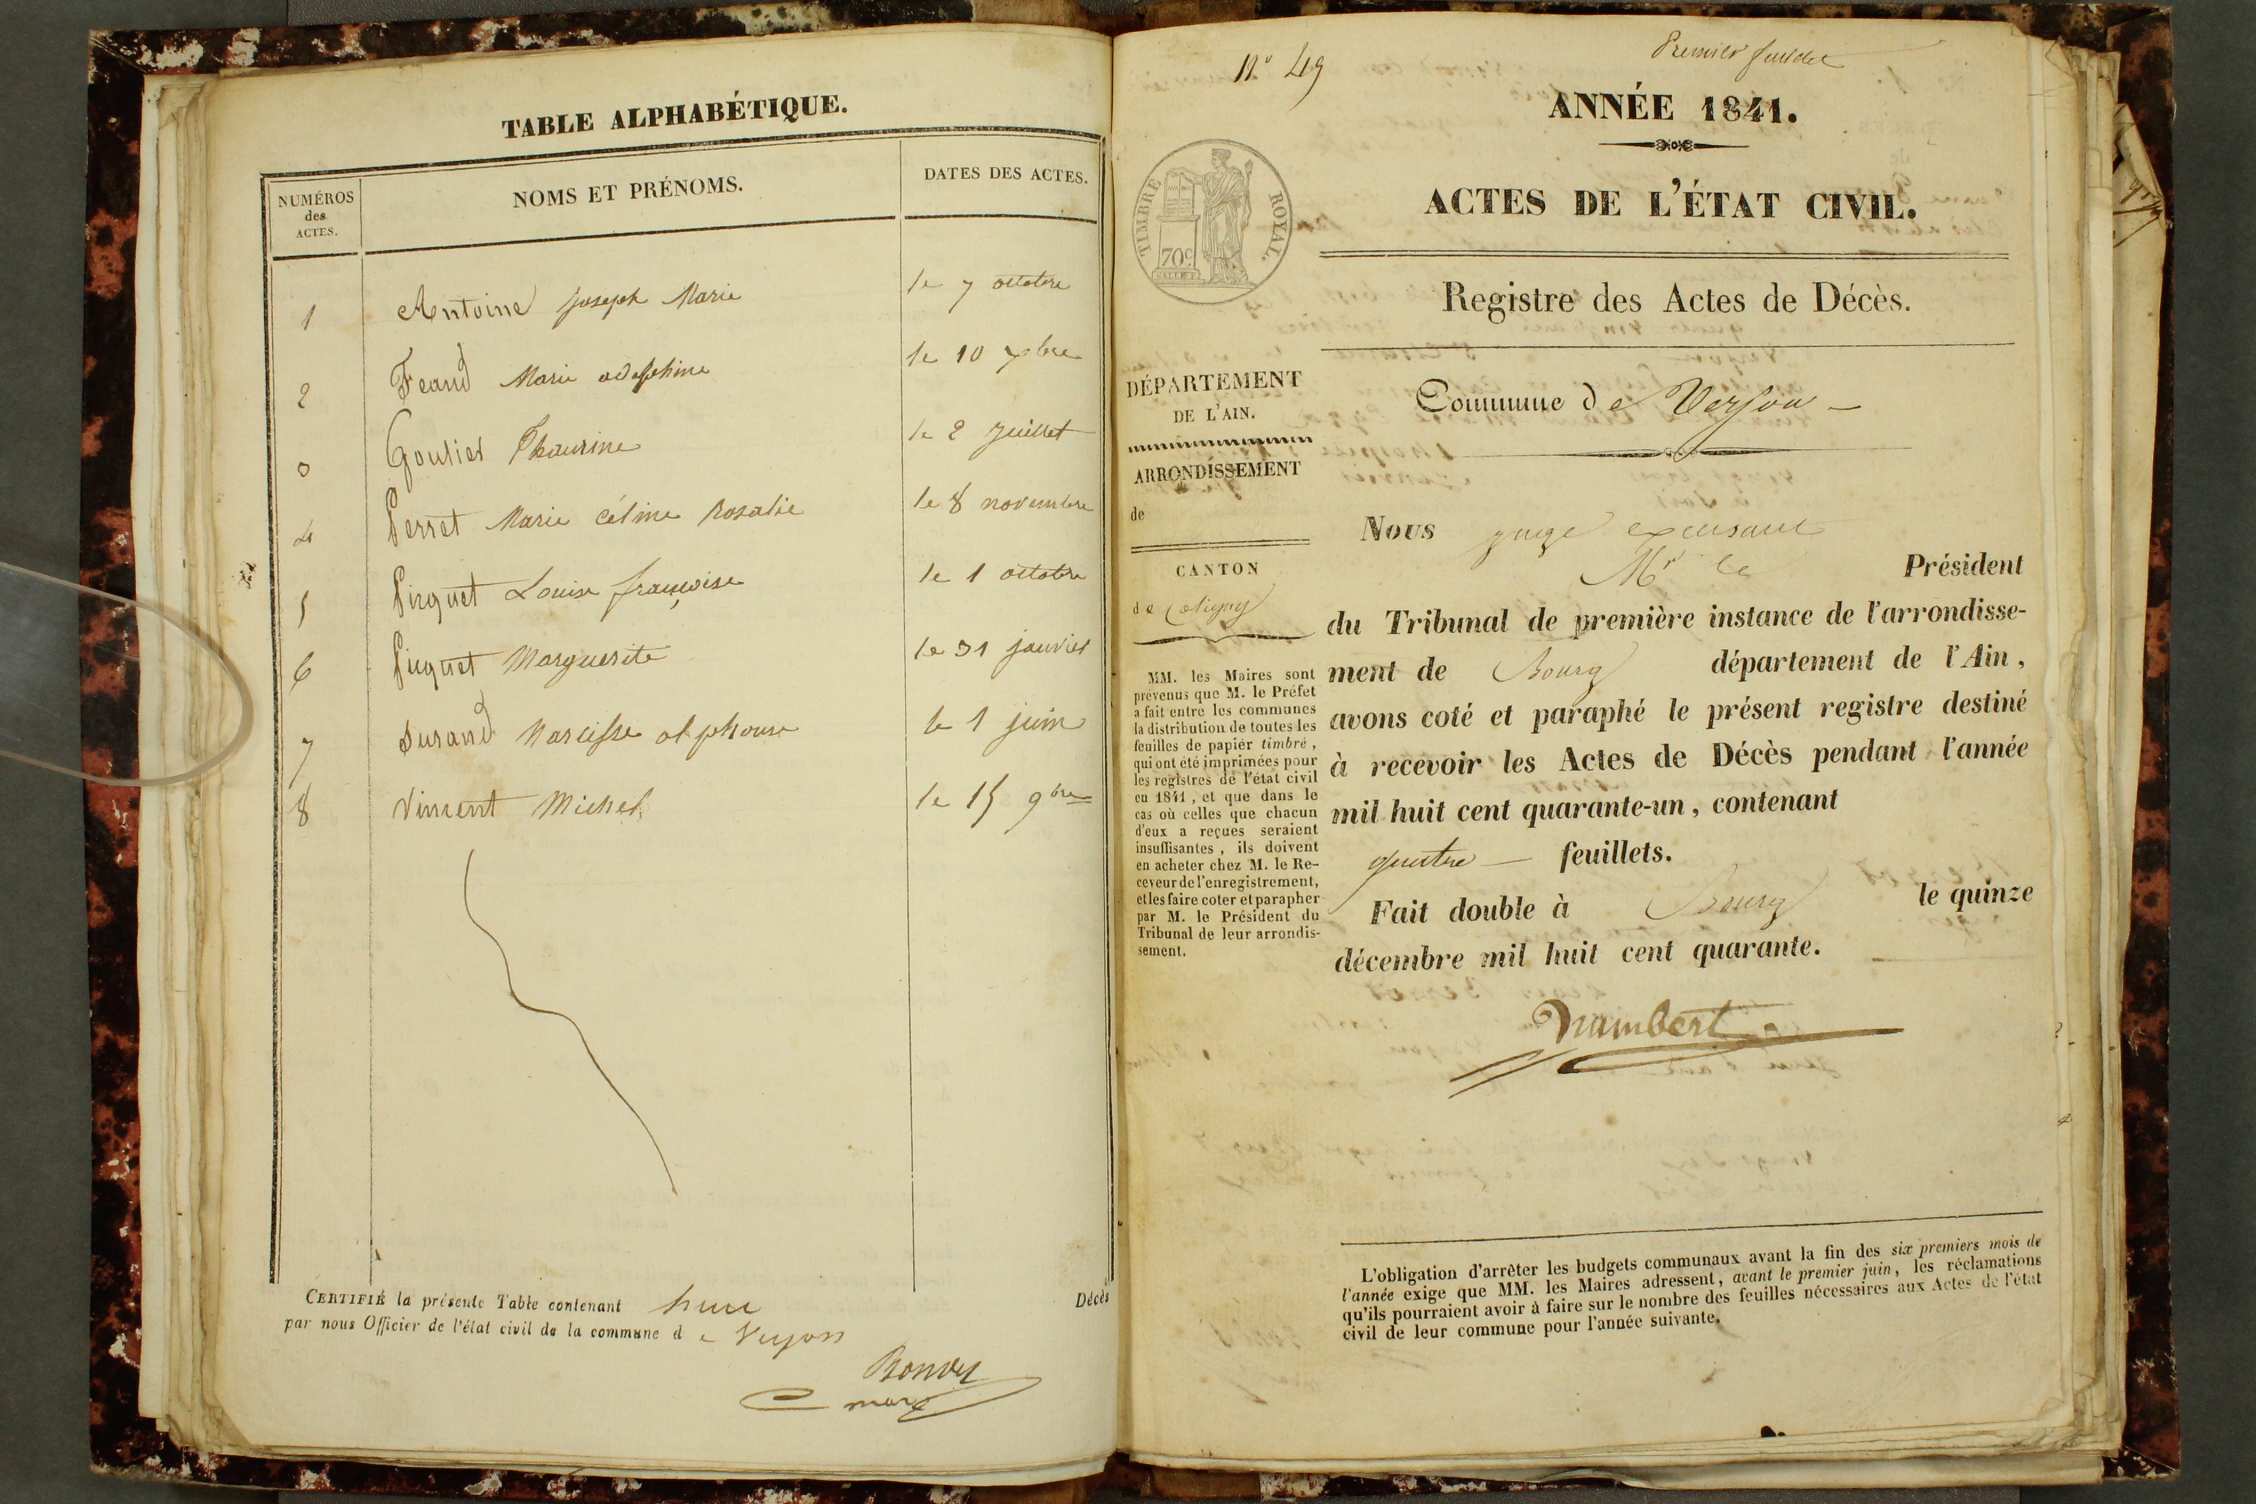 TABLE ALPHABÉTIQUE.
NUMÉROS
des
ACTES.
NOMS ET PRÉNOMS.
DATES DES ACTES.
1 Antoine Joseph Marie le 7 octobre
2 Feaud Marie adelphine le 10 7bre
3 Goutier le 2 Juillet
4 Perret Marie céline Rosalie le 8 novembre
5 Pirquet Louise françoise le 1 octobre
6 Marguerite le 31 janvier
7 Durand Narcisse alphonse le 1 juin
8 Vincent Michel le 15 9bre
CERTIFIÉ la présente Table contenant
par nous Officier de l'état civil de la commune de Verjon
Décès
N° 49
Premier feuillet
ANNÉE 1841.
ACTES DE L'ÉTAT CIVIL.
Registre des Actes de Décès.
TIMBRE ROYAL.
70c
DÉPARTEMENT
DE L'AIN.
ARRONDISSEMENT
de
CANTON
de Coligny
MM. les Maires sont
prévenus que M. le Préfet
a fait entre les communes
la distribution de toutes les
feuilles de papier timbré,
qui ont été imprimées pour
les registres de l'état civil
en 1841, et que dans le
cas où celles que chacun
d'eux a reçues seraient
insuffisantes, ils doivent
en acheter chez M. le Re-
ceveur de l'enregistrement,
et les faire coter et parapher
par M. le Président du
Tribunal de leur arrondis-
sement.
Commune de Verjon
Nous juge
Mr le Président
du Tribunal de première instance de l'arrondisse-
ment de Bourg département de l'Ain,
avons coté et paraphé le présent registre destiné
à recevoir les Actes de Décès pendant l'année
mil huit cent quarante-un, contenant
quatre feuillets.
Fait double à Bourg le quinze
décembre mil huit cent quarante.
L'obligation d'arrêter les budgets communaux avant la fin des six premiers mois de
l'année exige que MM. les Maires adressent, avant le premier juin, les réclamations
qu'ils pourraient avoir à faire sur le nombre des feuilles nécessaires aux Actes de l'état
civil de leur commune pour l'année suivante.